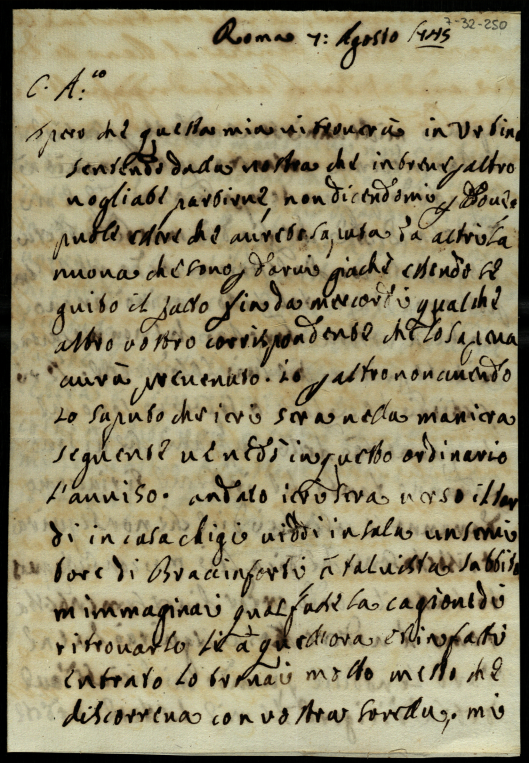 7-32-250
Roma 7: Agosto 1745
C. A:co
Spero che questa mia vi troverà in Urbino
sentendo dalla vostra che in breve p altro
vogliate partirne, non dicendomi p dove.
puole essere che aurete saputa da altri la
nuova che sono p darvi giaché essendo se
guito il fatto fin da mercordi qualche
altro vostro corrispondente che lo sapeva
aurà prevenuto. Io p altro non avendo
lo saputo che ieri sera nella maniera
seguente ve ne dò in questo ordinario
l'avviso. andato iersera verso il tar
di in casa Cligi viddi in sala un servi
tore di Bracciforti à tal vista subbito
m immaginai qual fusse la cagione di
ritrovarlo li à quell ora et in fatti
entrato lo trovai molto mesto che
discorreva con vostra sorella, mi